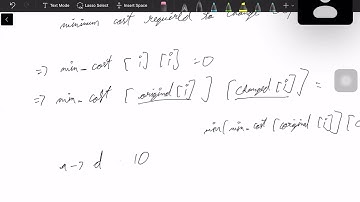 Text Select
Lasso Select
Insert Space
minimum cost required to change
=> min_cost [i][i] = 0
=> min_cost [original[i]] [changed[i]] =
min(min_cost [original[i]] [c
a -> d 10